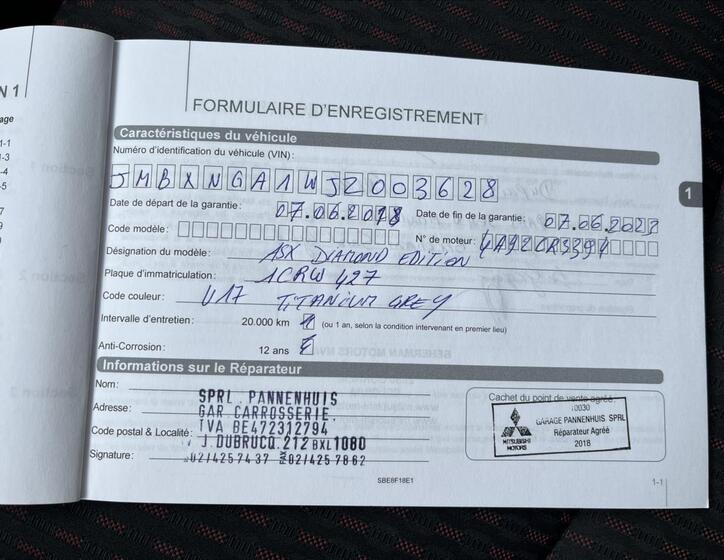 N 1
age
1-1
1-3
-4
-5
7
9
FORMULAIRE D'ENREGISTREMENT
Caractéristiques du véhicule
1
Numéro d'identification du véhicule (VIN) :
JMBXNGA1WJZ003628
Date de départ de la garantie : 07.06.2018 Date de fin de la garantie : 07.06.2023
Code modèle : N° de moteur :
Désignation du modèle : ASX DIAMOND EDITION
Plaque d'immatriculation : 1CRW 427
Code couleur : U17 TITANIUM GREY
Intervalle d'entretien : 20.000 km (ou 1 an, selon la condition intervenant en premier lieu)
Anti-Corrosion : 12 ans
Informations sur le Réparateur
Nom : SPRL. PANNENHUIS
Adresse : GAR. CARROSSERIE.
TVA BE472312794
Code postal & Localité : J. DUBRUCQ. 212 BXL 1080
Signature : 02/425 74 37 FAX 02/425 78 62
Cachet du point de vente agréé
10030
GARAGE PANNENHUIS SPRL
Réparateur Agréé
2018
MITSUBISHI
MOTORS
SBE8F18E1
1-1